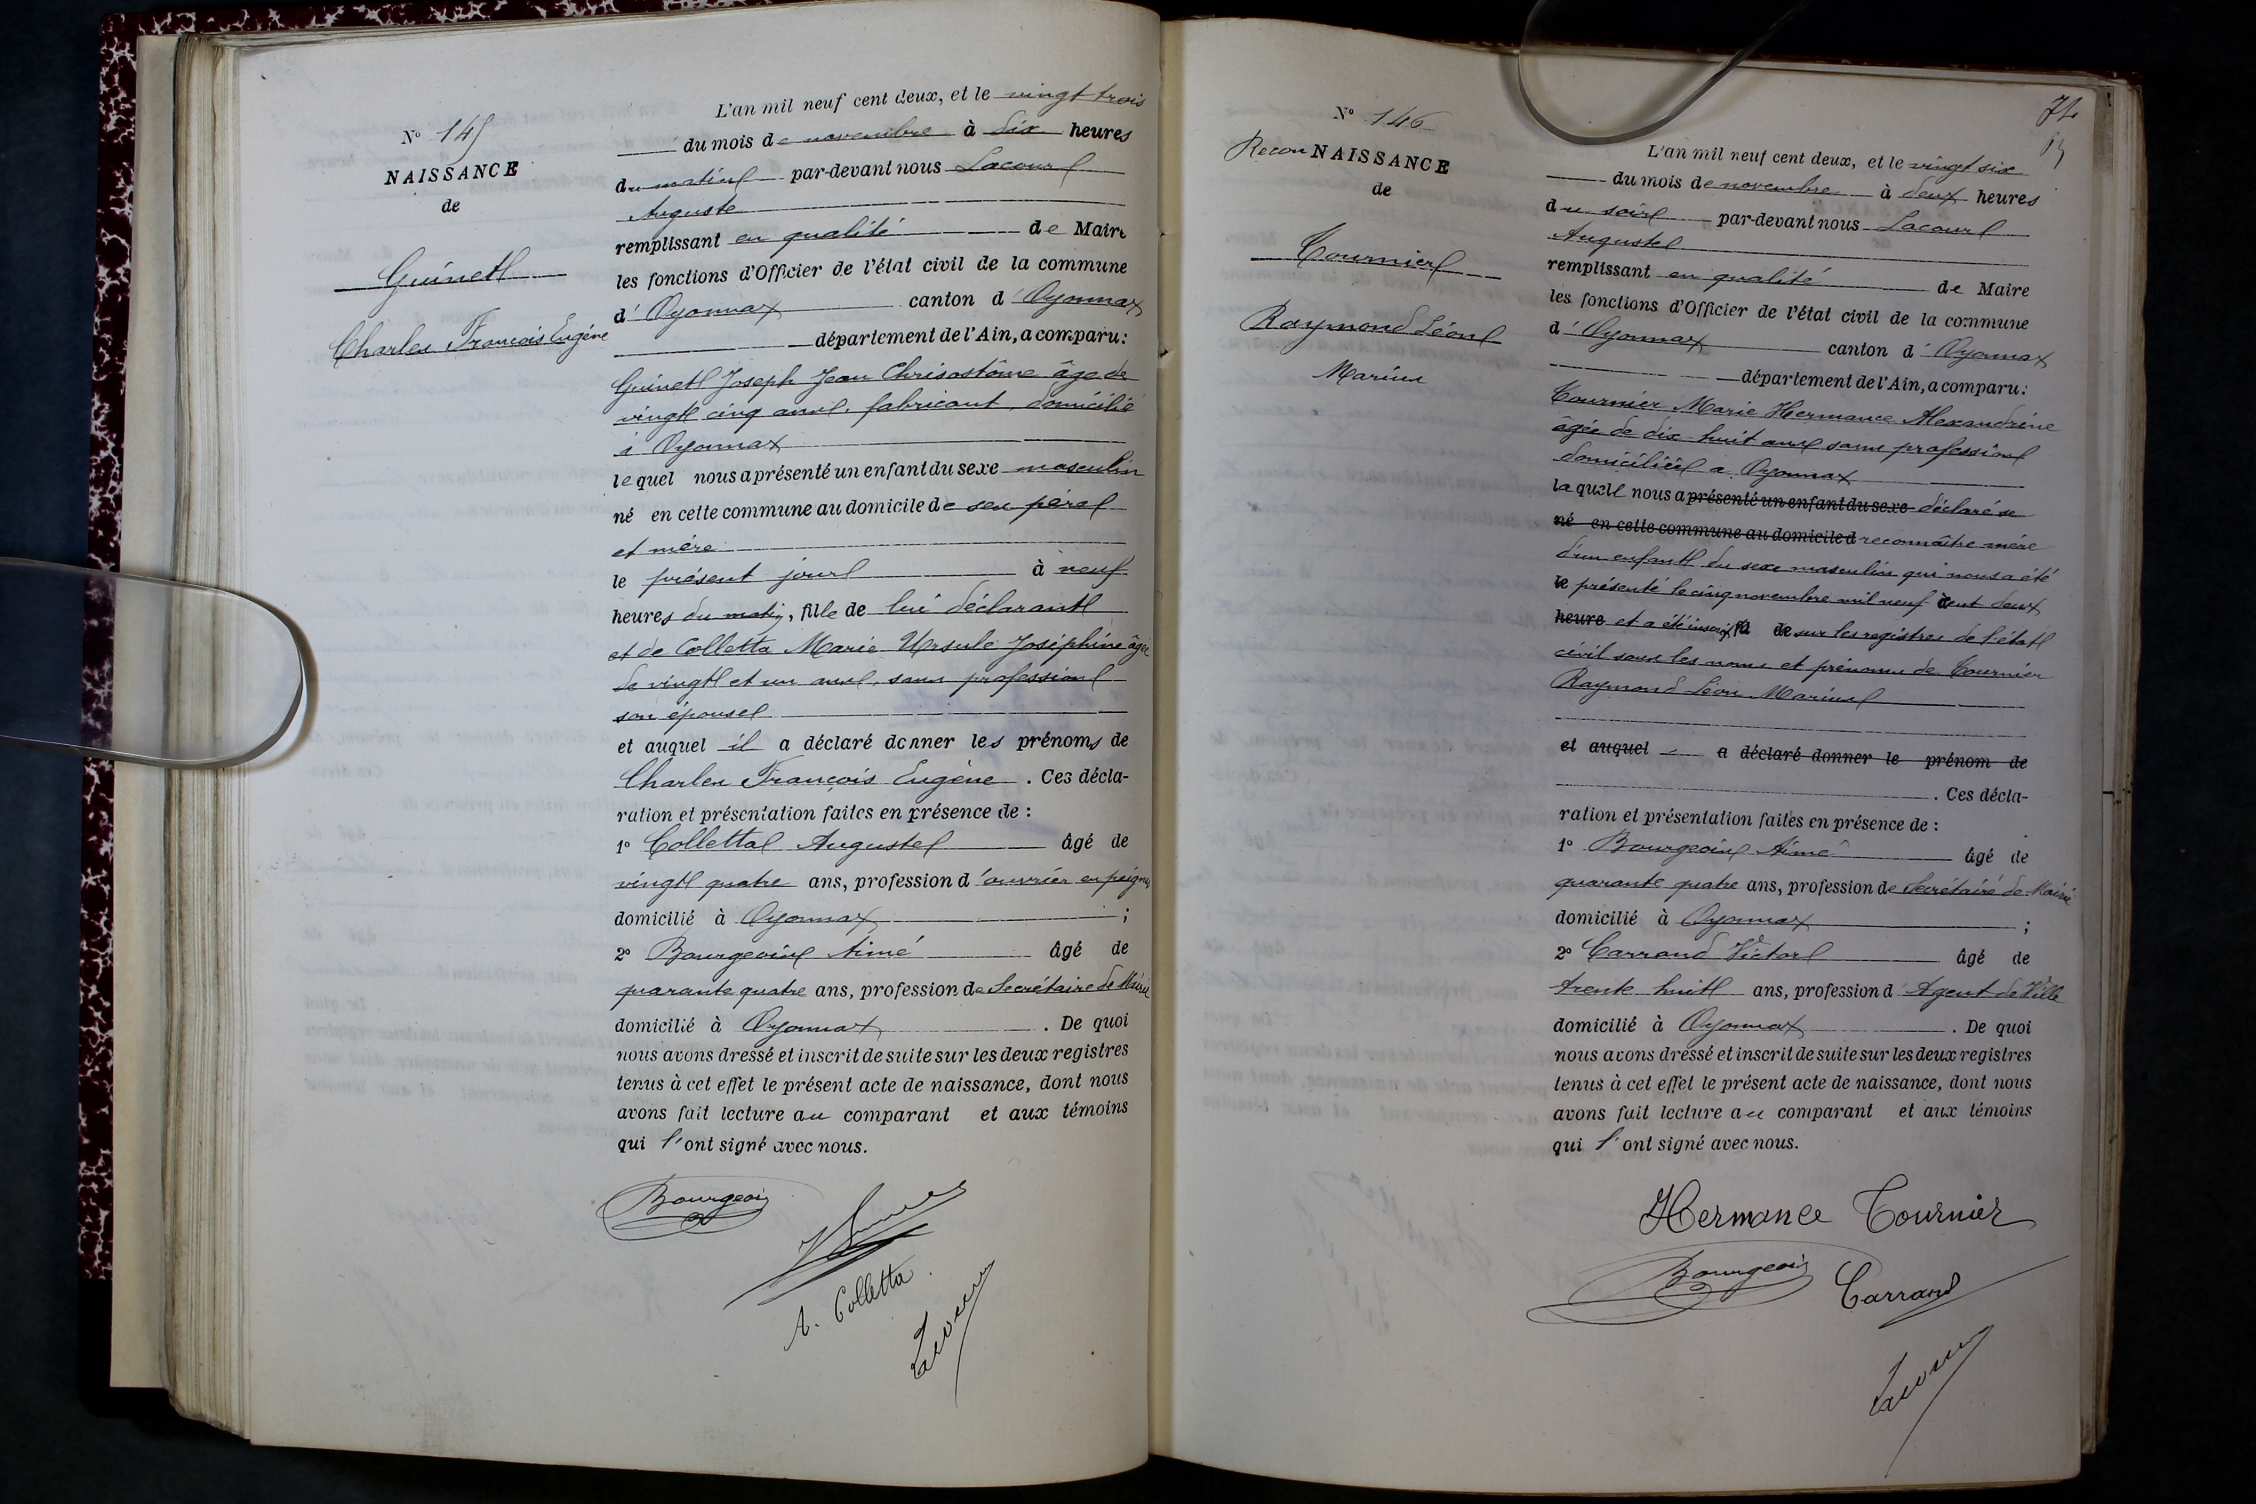 N° 145
NAISSANCE
de
Guinet
Charles François Eugène
L'an mil neuf cent deux, et le vingt trois
du mois de novembre à dix heures
du matin par-devant nous Lacour
Auguste
remplissant en qualité de Maire
les fonctions d'Officier de l'état civil de la commune
d'Oyonnax canton d'Oyonnax
département de l'Ain, a comparu:
Guinet Joseph Jean Chrisostôme âge de
vingt cinq ans, fabricant, domicilié
à Oyonnax
lequel nous a présenté un enfant du sexe masculin
né en cette commune au domicile de ses père
et mère
le présent jour à neuf
heures du matin, fille de lui déclarant
et de Colletta Marie Ursule Joséphine âgée
de vingt et un ans, sans profession
son épouse
et auquel il a déclaré donner les prénoms de
Charles François Eugène. Ces décla-
ration et présentation faites en présence de :
1° Colletta Auguste âgé de
vingt quatre ans, profession d'ouvrier en peignes
domicilié à Oyonnax ;
2° Bourgeois Aimé âgé de
quarante quatre ans, profession de Secrétaire de Mairie
domicilié à Oyonnax. De quoi
nous avons dressé et inscrit de suite sur les deux registres
tenus à cet effet le présent acte de naissance, dont nous
avons fait lecture au comparant et aux témoins
qui l'ont signé avec nous.
Bourgeois
A. Colletta
Lacour
74
N° 146
ReconNAISSANCE
de
Tournier
Raymond Léon
Marius
L'an mil neuf cent deux, et le vingt six
du mois de novembre à deux heures
du soir par-devant nous Lacour
Auguste
remplissant en qualité de Maire
les fonctions d'Officier de l'état civil de la commune
d'Oyonnax canton d'Oyonnax
département de l'Ain, a comparu:
Tournier Marie Hermance Alexandrine
âgée de dix-huit ans sans profession
domiciliée a Oyonnax
laquelle nous a présenté un enfant du sexe déclaré se
né en cette commune au domicile d reconnaître mère
d'un enfant du sexe masculin qui nous a été
le présenté le cinq novembre mil neuf cent deux
heure et a été inscrit fil de sur les registres de l'état
civil sous les noms et prénoms de Tournier
Raymond Léon Marius
et auquel a déclaré donner le prénom de
. Ces décla-
ration et présentation faites en présence de :
1° Bourgeois Aimé âgé de
quarante quatre ans, profession de Secrétaire de Mairie
domicilié à Oyonnax ;
2° Carrand Victor âgé de
trente huit ans, profession d'Agent de Ville
domicilié à Oyonnax. De quoi
nous avons dressé et inscrit de suite sur les deux registres
tenus à cet effet le présent acte de naissance, dont nous
avons fait lecture au comparant et aux témoins
qui l'ont signé avec nous.
Hermance Tournier
Bourgeois Carrand
Lacour